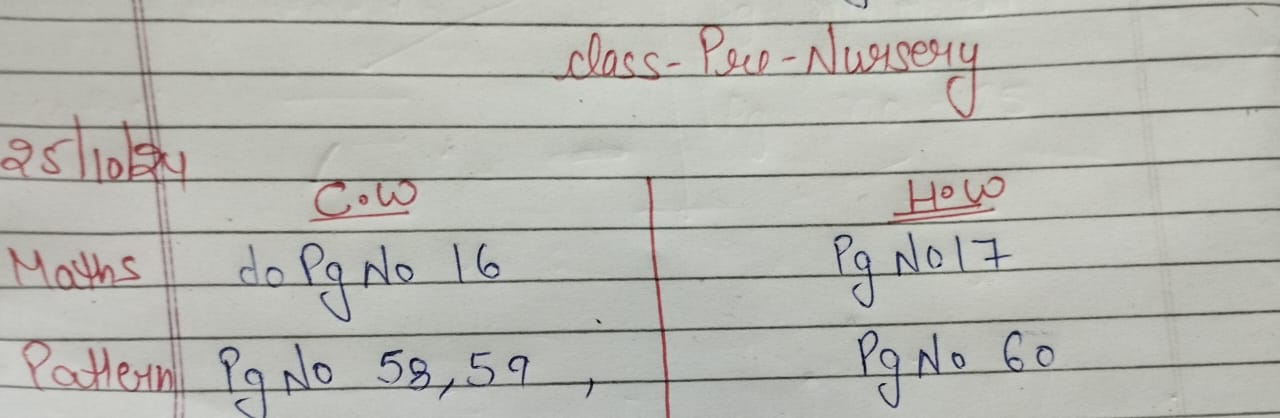 class-Pre-Nursery
25/10/24
C.W H.W
Maths do Pg No 16 Pg No 17
Pattern Pg No 58, 59 , Pg No 60